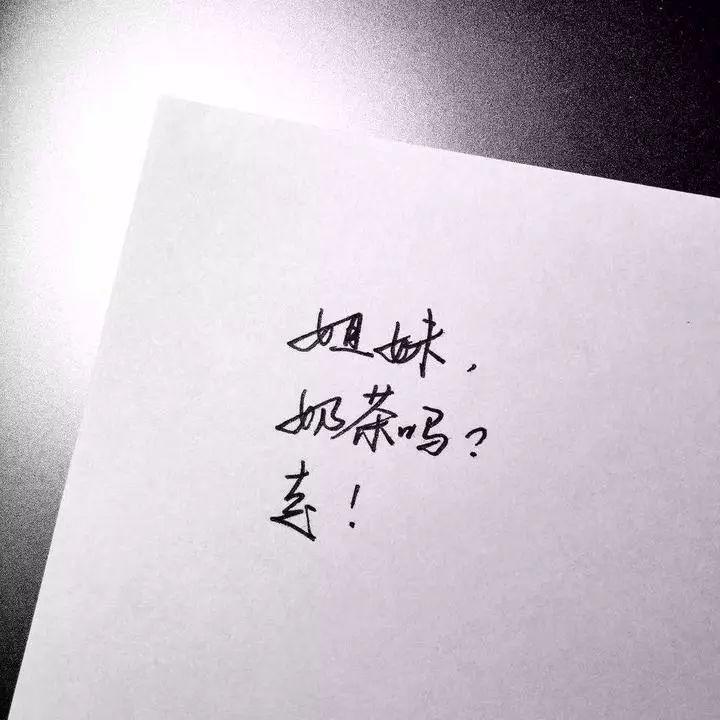 姐妹，
奶茶吗？
去！